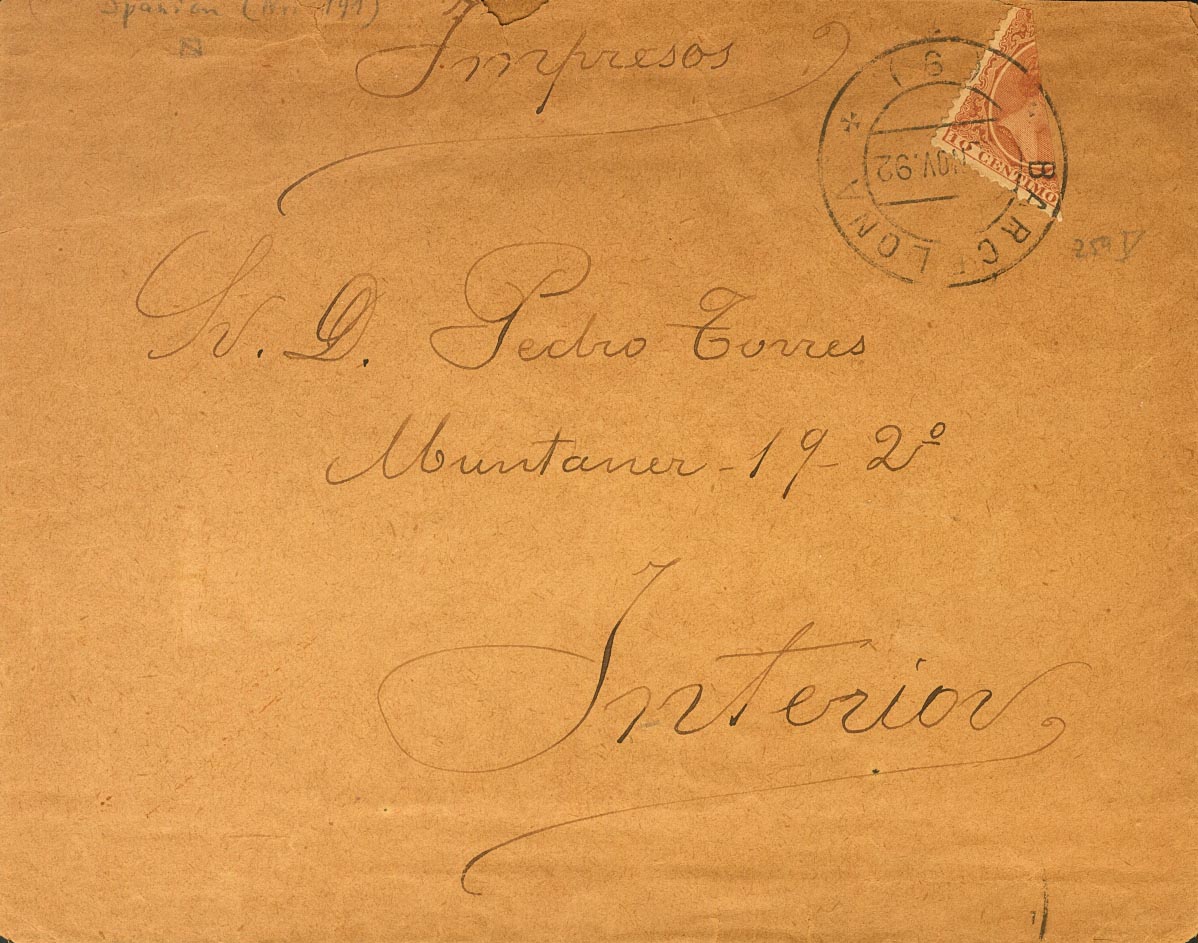 Spanien
Impresos
BARCELONA
NOV.92
10 CENTIMO
259 V
Sr. D. Pedro Torres
Muntaner - 19 - 2º
Interior